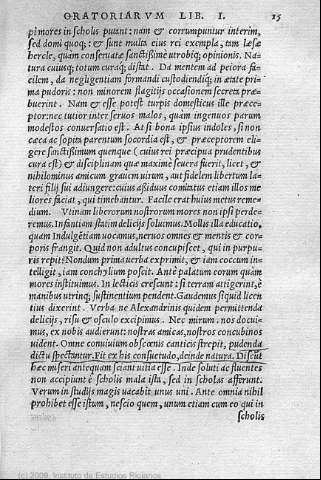 ORATORIARVM LIB. I. 15
pi mores in scholis putant: nam & corrumpuntur interim,
sed domi quoq;: & sunt multa eius rei exempla, tam læsæ
hercle, quàm conseruatæ sanctissimè utrobiq; opinionis. Na
tura cuiusq; totum curaq́; distat. Da mentem ad peiora fa
cilem, da negligentiam formandi custodiendiq́; in ætate pri
ma pudoris: non minorem flagitijs occasionem secreta præ
buerint. Nam & esse potest turpis domesticus ille præce-
ptor: nec tutior inter seruos malos, quàm ingenuos parum
modestos conuersatio est. At si bona ipsius indoles, si non
cæca ac sopita parentum socordia est, & præceptorem eli-
gere sanctissimum quenque (cuius rei præcipua prudentibus
cura est) & disciplinam quæ maximè seuera fuerit, licet, &
nihilominus amicum grauem uirum, aut fidelem libertum la-
teri filij sui adiungere: cuius aßiduus comitatus etiam illos me
liores faciat, qui timebantur. Facile erat huius metus reme-
dium. Vtinam liberorum nostrorum mores non ipsi perde-
remus. Infantiam statim delicijs soluimus. Mollis illa educatio,
quam indulgentiam uocamus, neruos omnes & mentis & cor-
poris frangit. Quid non adultus concupiscet, qui in purpu-
ris repit? Nondum prima uerba exprimit, & iam coccum in-
telligit, iam conchylium poscit. Antè palatum eorum quàm
mores instituimus. In lecticis crescunt: si terram attigerint, è
manibus utrinq; sustinentium pendent. Gaudemus si quid licen
tius dixerint. Verba ne Alexandrinis quidem permittenda
delicijs, risu & osculo excipimus. Nec mirum. nos docui-
mus, ex nobis audierunt: nostras amicas, nostros concubinos
uident. Omne conuiuium obscœnis canticis strepit, pudenda
dictu spectantur. Fit ex his consuetudo, deinde natura. Discūt
hæc miseri antequam sciant uitia esse. Inde soluti ac fluentes
non accipiunt è scholis mala ista, sed in scholas afferunt.
Verum in studijs magis uacabit unus uni. Ante omnia nihil
prohibet esse istum, nescio quem, unum etiam cum eo qui in
scholis
(c) 2009, Instituto de Estudios Riojanos